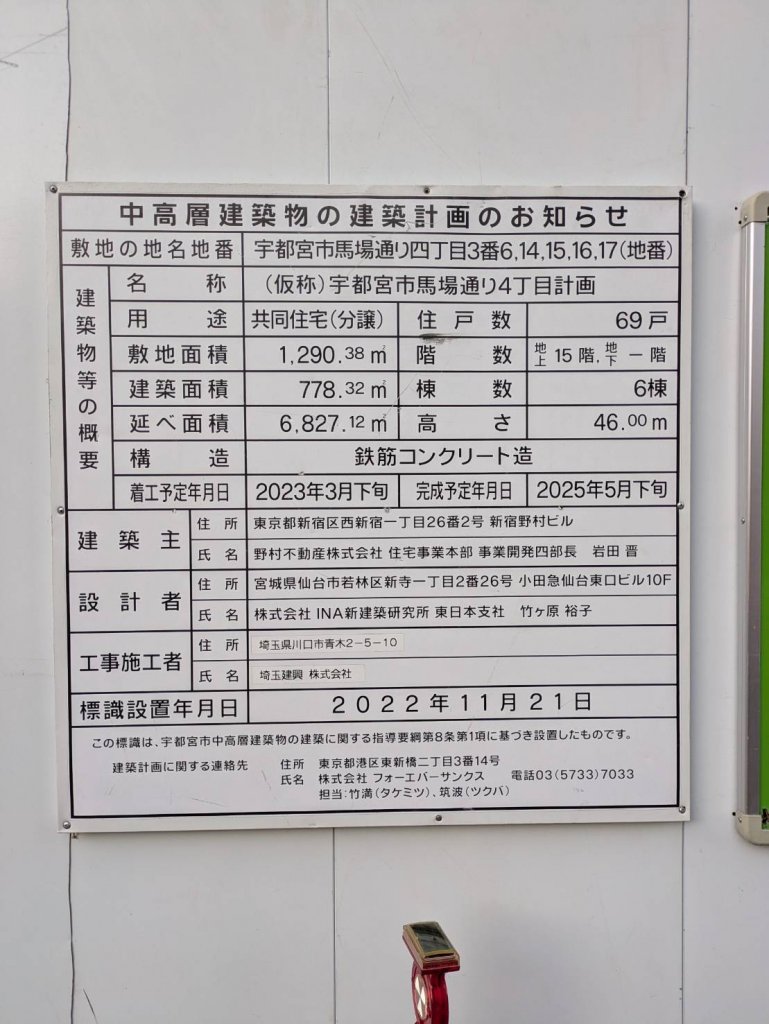 中高層建築物の建築計画のお知らせ
敷地の地名地番 宇都宮市馬場通り四丁目3番6,14,15,16,17(地番)
建築物等の概要
名称 (仮称)宇都宮市馬場通り4丁目計画
用途 共同住宅(分譲) 住戸数 69戸
敷地面積 1,290.38㎡ 階数 地上15階,地下ー階
建築面積 778.32㎡ 棟数 6棟
延べ面積 6,827.12㎡ 高さ 46.00m
構造 鉄筋コンクリート造
着工予定年月日 2023年3月下旬 完成予定年月日 2025年5月下旬
建築主 住所 東京都新宿区西新宿一丁目26番2号 新宿野村ビル
氏名 野村不動産株式会社 住宅事業本部 事業開発四部長 岩田 晋
設計者 住所 宮城県仙台市若林区新寺一丁目2番26号 小田急仙台東口ビル10F
氏名 株式会社 INA新建築研究所 東日本支社 竹ヶ原 裕子
工事施工者 住所 埼玉県川口市青木2-5-10
氏名 埼玉建興 株式会社
標識設置年月日 2022年11月21日
この標識は、宇都宮市中高層建築物の建築に関する指導要綱第8条第1項に基づき設置したものです。
建築計画に関する連絡先 住所 東京都港区東新橋二丁目3番14号
氏名 株式会社 フォーエバーサンクス 電話03(5733)7033
担当:竹満(タケミツ)、筑波(ツクバ)